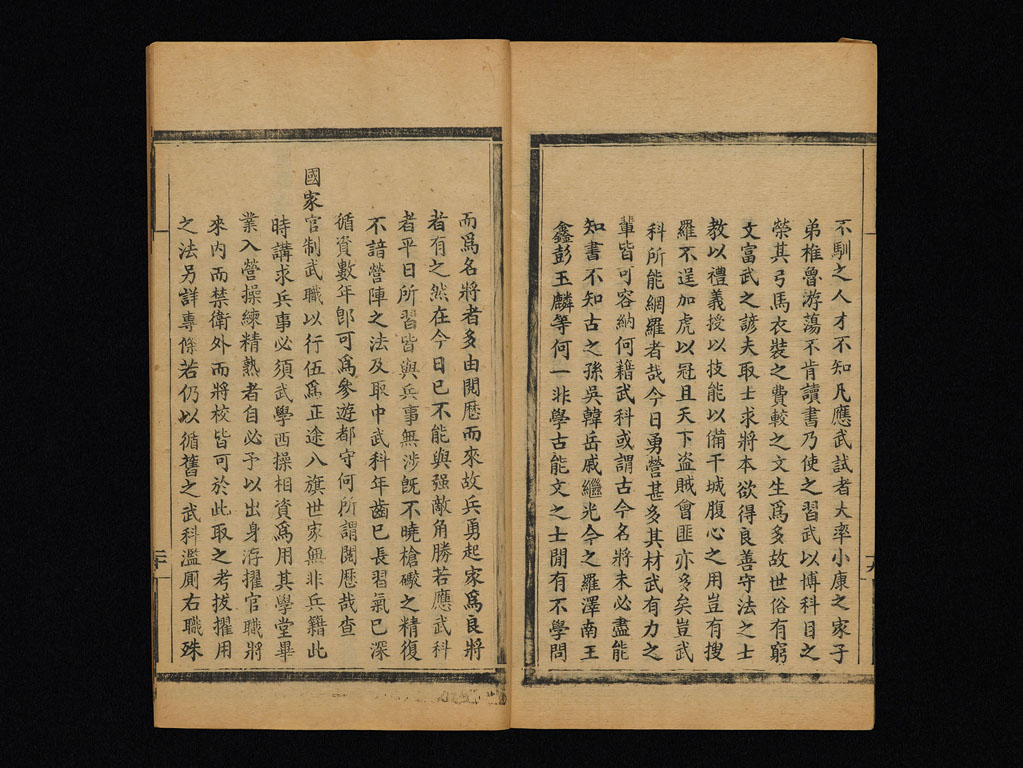 不馴之人才不知凡應武試者大率小康之家子
弟椎魯游蕩不肯讀書乃使之習武以博科目之
榮其弓馬衣裝之費較之文生爲多故世俗有窮
文富武之諺夫取士求將本欲得良善守法之士
教以禮義授以技能以備干城腹心之用豈有搜
羅不逞加虎以冠且天下盜賊會匪亦多矣豈武
科所能網羅者哉今日勇營甚多其材武有力之
輩皆可容納何藉武科或謂古今名將未必盡能
知書不知古之孫吳韓岳戚繼光今之羅澤南王
鑫彭玉麟等何一非學古能文之士閒有不學問
而爲名將者多由閱歷而來故兵勇起家爲良將
者有之然在今日已不能與强敵角勝若應武科
者平日所習皆與兵事無涉旣不曉槍礮之精復
不諳營陣之法及取中武科年齒已長習氣已深
循資數年卽可爲參遊都守何所謂閱歷哉查
國家官制武職以行伍爲正途八旗世家無非兵籍此
時講求兵事必須武學西操相資爲用其學堂畢
業入營操練精熟者自必予以出身洊擢官職將
來內而禁衛外而將校皆可於此取之考拔擢用
之法另詳專條若仍以循舊之武科濫厠右職殊